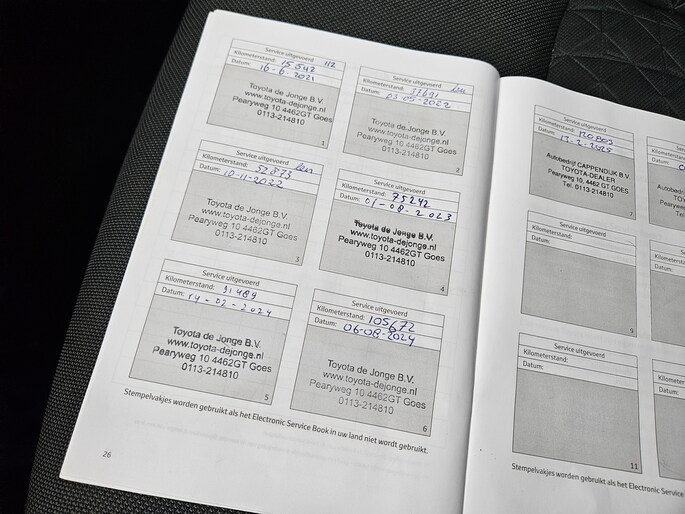 Service uitgevoerd
Kilometerstand: 15542
Datum: 16-6-2021
Toyota de Jonge B.V.
www.toyota-dejonge.nl
Pearyweg 10 4462GT Goes
0113-214810
1
Service uitgevoerd
Kilometerstand: 32691
Datum: 03-05-2022
Toyota de Jonge B.V.
www.toyota-dejonge.nl
Pearyweg 10 4462GT Goes
0113-214810
2
Service uitgevoerd
Kilometerstand: 52873
Datum: 10-11-2022
Toyota de Jonge B.V.
www.toyota-dejonge.nl
Pearyweg 10 4462GT Goes
0113-214810
3
Service uitgevoerd
Kilometerstand: 75242
Datum: 01-08-2023
Toyota de Jonge B.V.
www.toyota-dejonge.nl
Pearyweg 10 4462GT Goes
0113-214810
4
Service uitgevoerd
Kilometerstand: 91489
Datum: 14-02-2024
Toyota de Jonge B.V.
www.toyota-dejonge.nl
Pearyweg 10 4462GT Goes
0113-214810
5
Service uitgevoerd
Kilometerstand: 105672
Datum: 06-08-2024
Toyota de Jonge B.V.
www.toyota-dejonge.nl
Pearyweg 10 4462GT Goes
0113-214810
6
Stempelvakjes worden gebruikt als het Electronic Service Book in uw land niet wordt gebruikt.
26
Service uitgevoerd
Kilometerstand:
Datum:
Autobedrijf CAPPENDIJK B.V.
TOYOTA-DEALER
Pearyweg 10, 4462 GT GOES
Tel. 0113-214810
Service uitgevoerd
Kilometerstand:
Datum:
9
Service uitgevoerd
Kilometerstand:
Datum:
11
Kilometerstand
Datum:
Autobedrijf
TOY
Pearyweg
Tel.
Kilometer
Datum:
Kilome
Datum
Stempelvakjes worden gebruikt als het Electronic Service